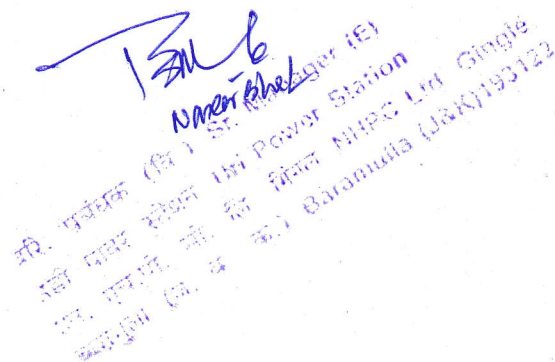 Naseer Bhat
वरि. प्रबंधक (वि.) Sr. Manager (E)
उड़ी पावर स्टेशन Uri Power Station
एन. एच.पी. सी. लि. गिंगल NHPC Ltd. Gingle
बारामुला (ज. व क.) Baramulla (J&K)193122